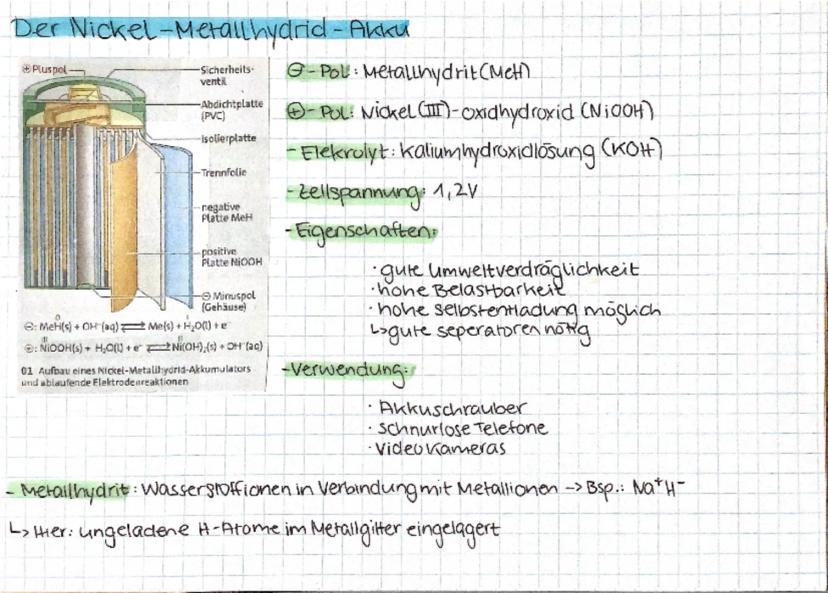 Der Nickel-Metallhydrid-Akku
⊕ Pluspol
Sicherheits-
ventil
Abdichtplatte
(PVC)
Isolierplatte
Trennfolie
negative
Platte MeH
positive
Platte NiOOH
⊖ Minuspol
(Gehäuse)
⊖: MeH(s) + OH⁻(aq) ⇌ Me(s) + H₂O(l) + e⁻
⊕: NiOOH(s) + H₂O(l) + e⁻ ⇌ Ni(OH)₂(s) + OH⁻(aq)
01 Aufbau eines Nickel-Metallhydrid-Akkumulators
und ablaufende Elektrodenreaktionen
⊖-Pol: Metallhydrit (MeH)
⊕-Pol: Nickel(III)-oxidhydroxid (NiOOH)
-Elekrolyt: Kaliumhydroxidlösung (KOH)
-Zellspannung: 1,2V
-Eigenschaften:
· gute Umweltverdräglichkeit
· hohe Belastbarkeit
· hohe Selbstentladung möglich
↳ gute seperatoren nötig
-Verwendung:
· Akkuschrauber
· schnurlose Telefone
· Videokameras
- Metallhydrit: Wasserstoffionen in Verbindung mit Metallionen → Bsp.: Na⁺H⁻
↳ Hier: ungeladene H-Atome im Metallgitter eingelagert